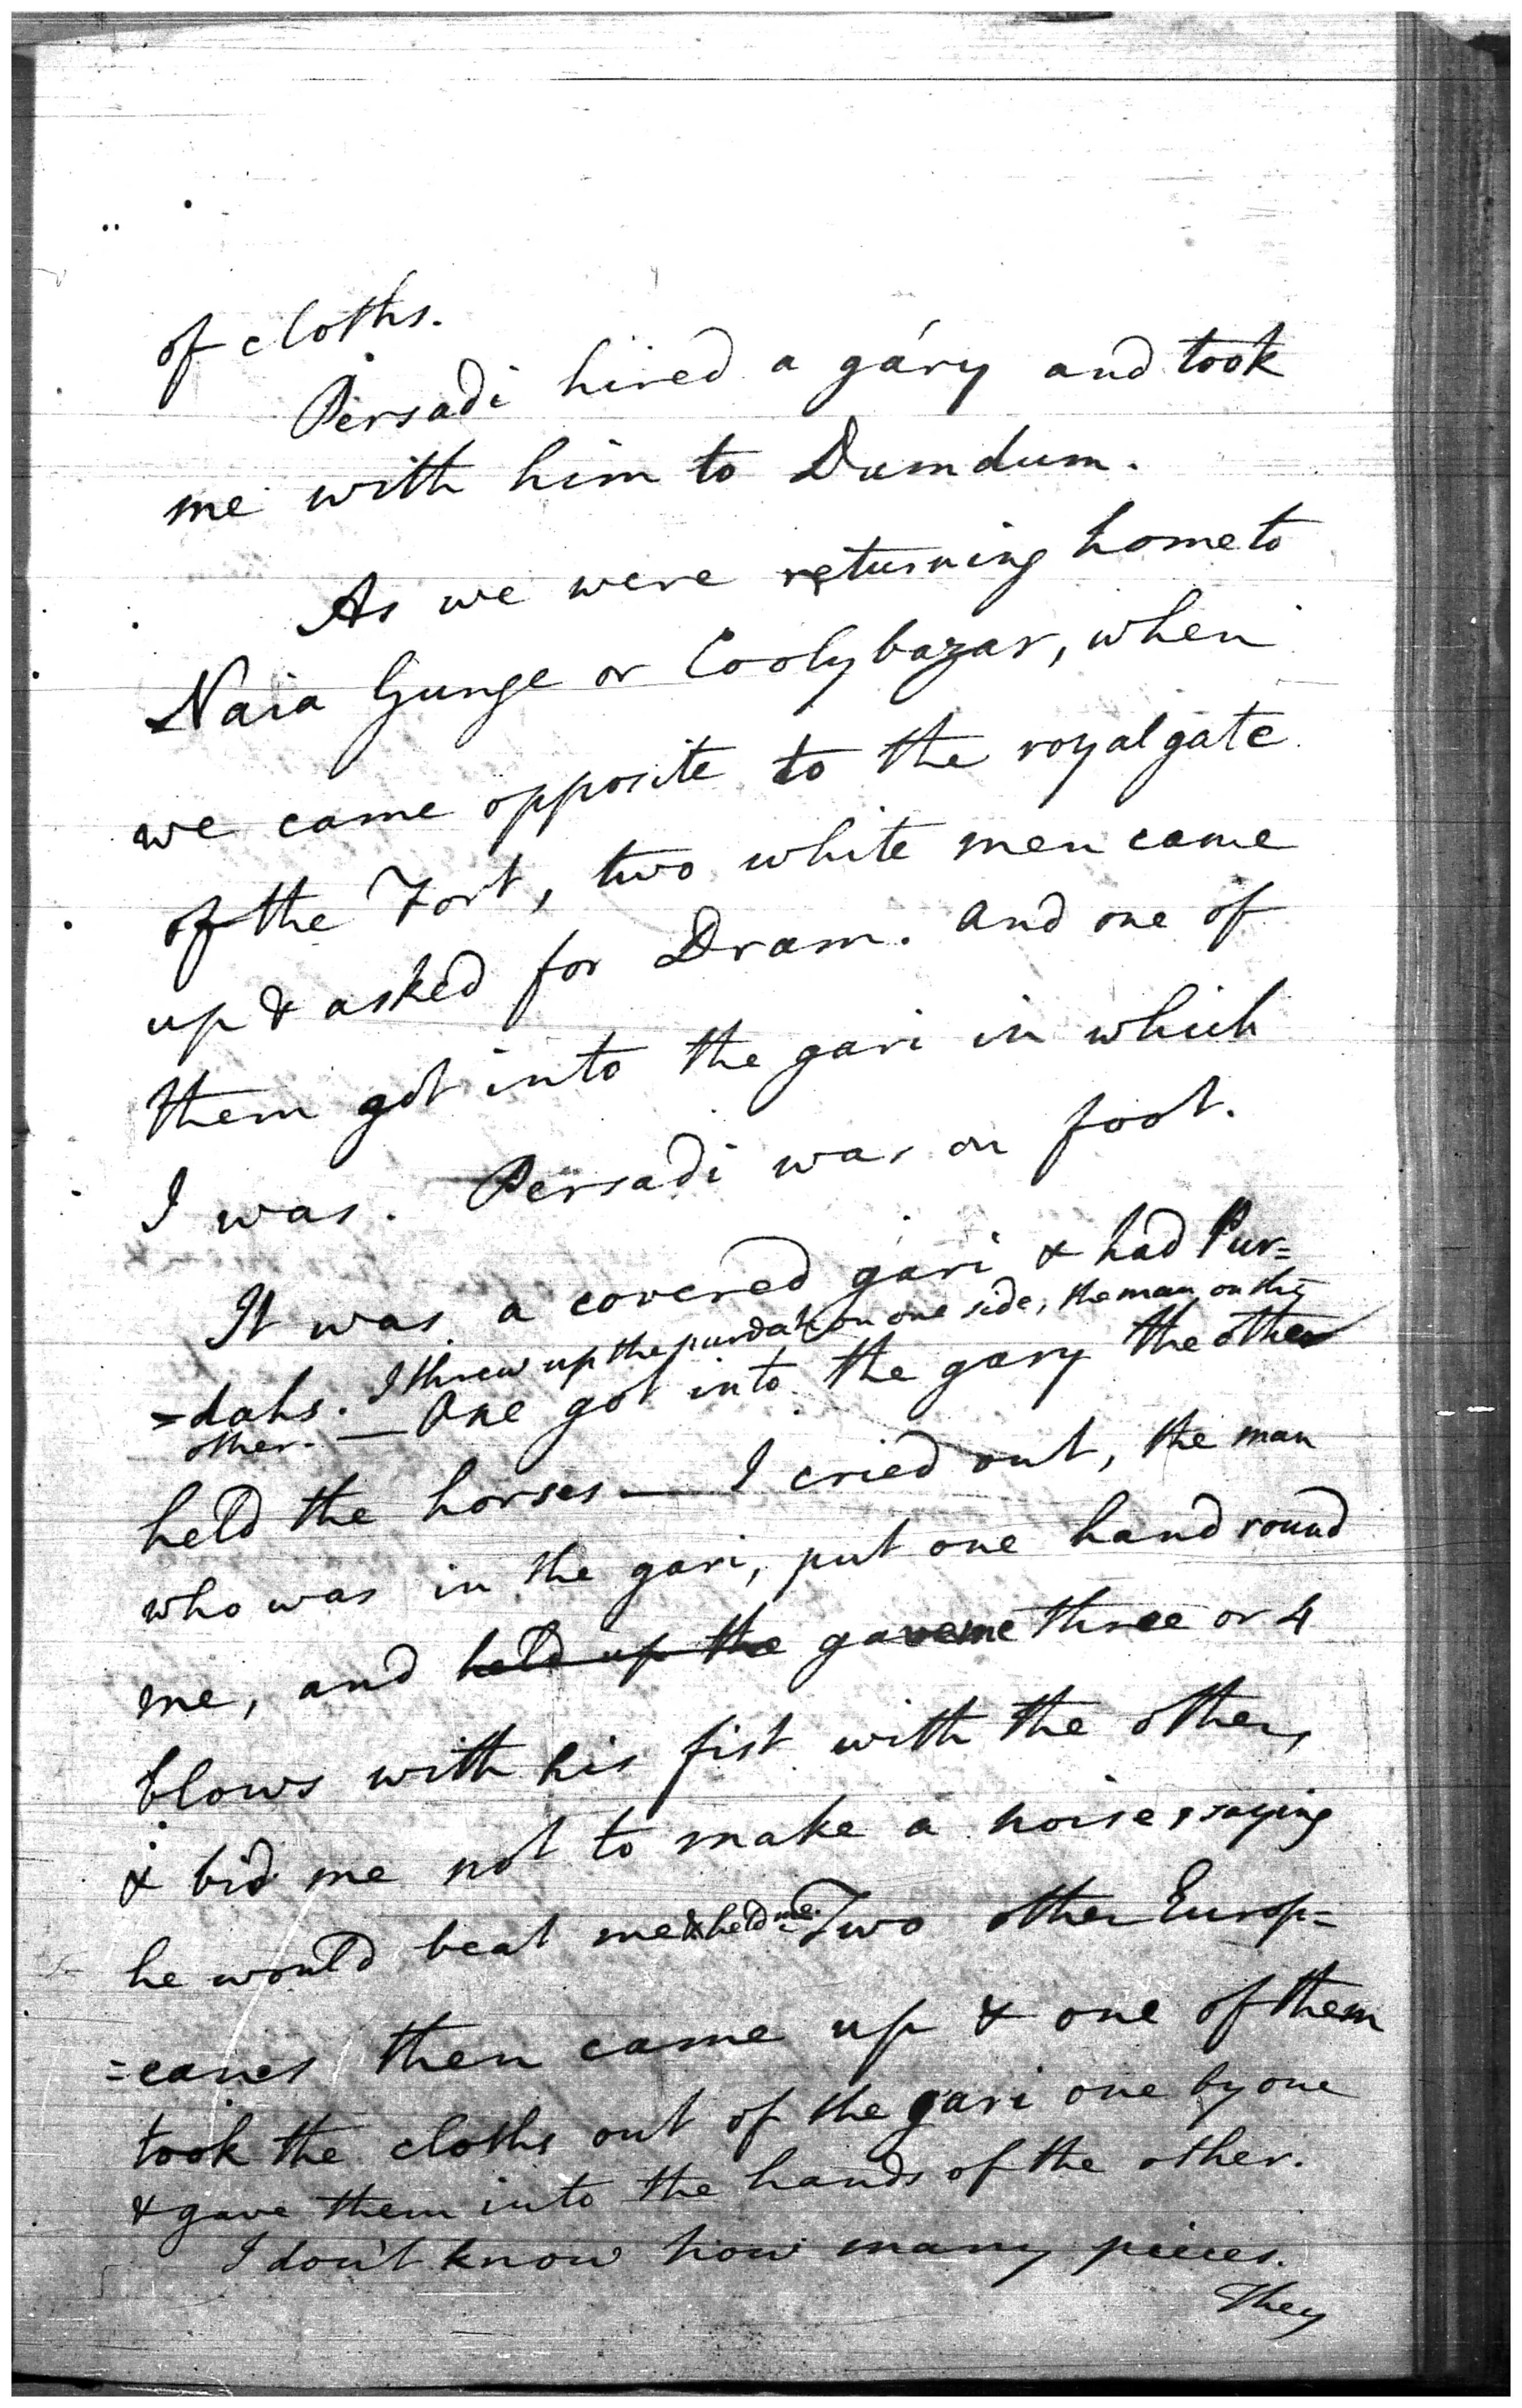 of cloths.
Persadi hired a gáry and took
me with him to Dumdum.
As we were returning home to
Naia Gunge or Coolybazar, when
we came opposite to the royal gate
of the Fort, two white men came
up & asked for Dram. and one of
them got into the gari in which
I was. Persadi was on foot.
It was a covered gari & had Pur=
I threw up the purdah on one side, the man on the
=dahs. — One got into the gary the other
other.
held the horses — I cried out, the man
who was in the gari, put one hand round
me, and held up the gave me three or 4
blows with his fist with the other,
& bid me not to make a noise, saying
he would beat me & held me. Two other Europ=
=eanes then came up & one of them
took the cloths out of the gari one by one
& gave them into the hands of the other.
I don't know how many pieces.
They